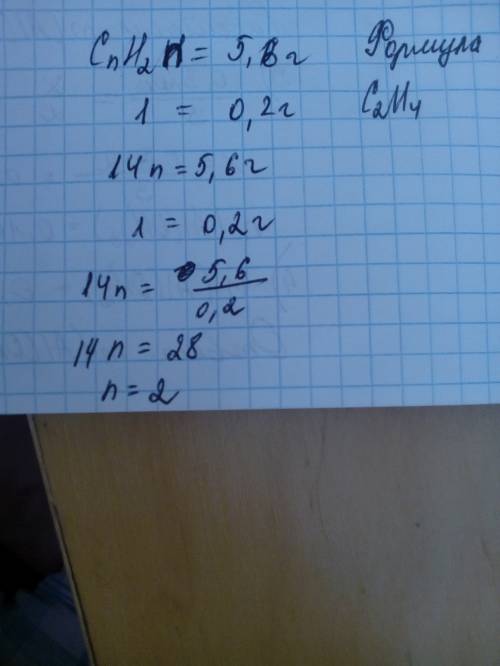 CnH2n = 5,6г Формула
1 = 0,2г C2H4
14n = 5,6г
1 = 0,2г
14n = 5,6/0,2
14n = 28
n = 2